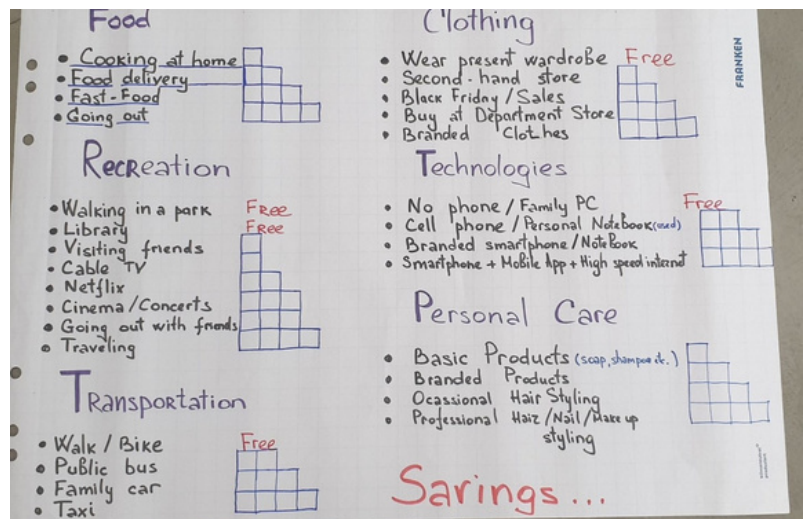 Food
• Cooking at home
• Food delivery
• Fast-Food
• Going out
Recreation
• Walking in a park Free
• Library Free
• Visiting friends
• Cable TV
• Netflix
• Cinema/Concerts
• Going out with friends
• Traveling
Transportation
• Walk / Bike Free
• Public bus
• Family car
• Taxi
Clothing
• Wear present wardrobe Free
• Second-hand store
• Black Friday / Sales
• Buy at Department Store
• Branded Clothes
Technologies
• No phone / Family PC Free
• Cell phone / Personal Notebook (used)
• Branded smartphone / Notebook
• Smartphone + Mobile App + High speed internt
Personal Care
• Basic Products (soap, shampoo etc.)
• Branded Products
• Ocassional Hair Styling
• Professional Hair / Nail / Make up
styling
Savings...
FRANKEN